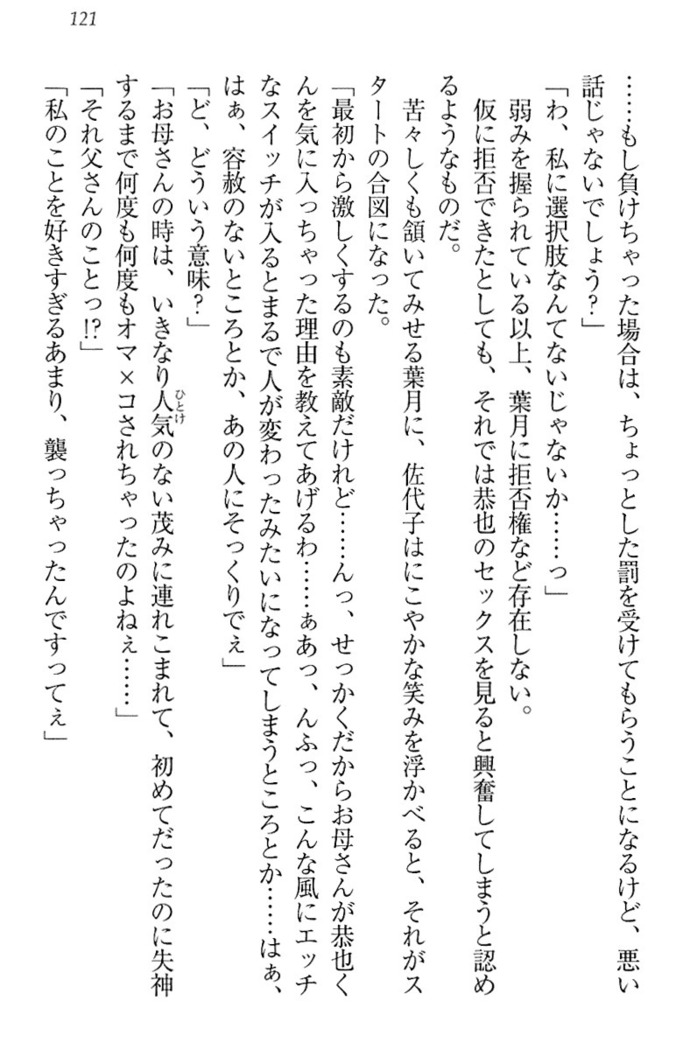 121
……もし負けちゃった場合は、ちょっとした罰を受けてもらうことになるけど、悪い
話じゃないでしょう？」
「わ、私に選択肢なんてないじゃないか……っ」
弱みを握られている以上、葉月に拒否権など存在しない。
仮に拒否できたとしても、それでは恭也のセックスを見ると興奮してしまうと認め
るようなものだ。
苦々しくも頷いてみせる葉月に、佐代子はにこやかな笑みを浮かべると、それがス
タートの合図になった。
「最初から激しくするのも素敵だけれど……んっ、せっかくだからお母さんが恭也く
んを気に入っちゃった理由を教えてあげるわ……ぁあっ、んふっ、こんな風にエッチ
なスイッチが入るとまるで人が変わったみたいになってしまうところとか……はぁ、
はぁ、容赦のないところとか、あの人にそっくりでぇ」
「ど、どういう意味？」
「お母さんの時は、いきなり人気ひとけのない茂みに連れこまれて、初めてだったのに失神
するまで何度も何度もオマ×コされちゃったのよねぇ……」
「それ父さんのことっ!?」
「私のことを好きすぎるあまり、襲っちゃったんですってぇ」